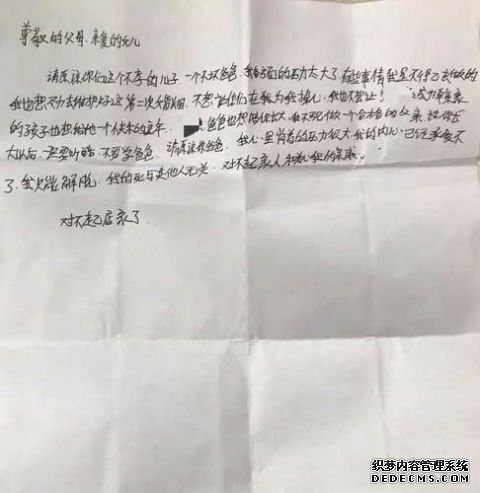 尊敬的父母、亲爱的女儿
请原谅你们这个不孝的儿子 一个不好爸爸,我各方面的压力太大了,有些事情我是不得已去做的
我也想努力去维护好这第二次婚姻,不想让你们在为我操心,我也不想让
的孩子也想给他一个快乐的童年 爸爸也想陪你长大,我不配做一个合格的父亲 让你长
大以后一定要听话 不要学爸爸 请原谅爸爸 我心里背着的压力很大我的内心已经承受不
了,我只能解脱,我的死与其他人无关,对不起家人和我的家底。
对不起店家了
织梦内容管理系统
DEDECMS.COM